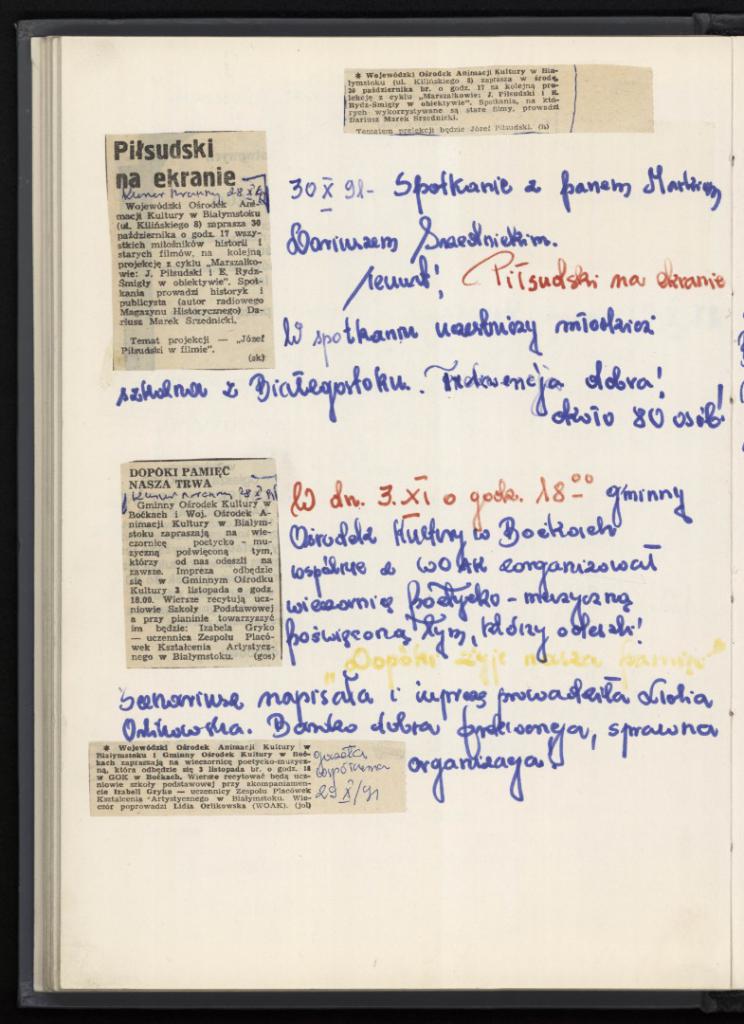 * Wojewódzki Ośrodek Animacji Kultury w Bia-
łymstoku (ul. Kilińskiego 8) zaprasza w środę,
30 października br. o godz. 17 na kolejną pro-
lekcję z cyklu „Marszałkowie: J. Piłsudski i E.
Rydz-Śmigły w obiektywie". Spotkania, na któ-
rych wykorzystywane są stare filmy, prowadzi
Dariusz Marek Srzednicki.
Tematem prelekcji będzie Józef Piłsudski. (h)
Piłsudski
na ekranie
Kurier Poranny 28 X 91
Wojewódzki Ośrodek Ani-
macji Kultury w Białymstoku
(ul. Kilińskiego 8) zaprasza 30
października o godz. 17 wszy-
stkich miłośników historii i
starych filmów, na kolejną
projekcję z cyklu „Marszałko-
wie: J. Piłsudski i E. Rydz-
Śmigły w obiektywie". Spot-
kania prowadzi historyk i
publicysta (autor radiowego
Magazynu Historycznego) Da-
riusz Marek Srzednicki.
Temat projekcji — „Józef
Piłsudski w filmie".
(ak)
30 X 91 - Spotkanie z panem Markiem
Dariuszem Srzednickim.
Temat! Piłsudski na ekranie
W spotkaniu uczestniczy młodzież
szkolna z Białegostoku. Frekwencja dobra!
około 80 osób!
DOPÓKI PAMIĘĆ
NASZA TRWA
Kurier Poranny 28 X 91
Gminny Ośrodek Kultury w
Boćkach i Woj. Ośrodek A-
nimacji Kultury w Białym-
stoku zapraszają na wie-
czornicę poetycko - mu-
zyczną poświęconą tym,
którzy od nas odeszli na
zawsze. Impreza odbędzie
się w Gminnym Ośrodku
Kultury 3 listopada o godz.
18.00. Wiersze recytują ucz-
niowie Szkoły Podstawowej
a przy pianinie towarzyszyć
im będzie: Izabela Gryko
— uczennica Zespołu Placó-
wek Kształcenia Artystycz-
nego w Białymstoku. (gos)
W dn. 3.XI o godz. 18⁰⁰ gminny
Ośrodek Kultury w Boćkach
wspólnie z WOAK zorganizował
wieczornicę poetycko - muzyczną
poświęconą tym, którzy odeszli!
"Dopóki żyje nasza pamięć"
Scenariusz napisała i imprezę prowadziła Lidia
Orlikowska. Bardzo dobra frekwencja, sprawna
organizacja!
* Wojewódzki Ośrodek Animacji Kultury w
Białymstoku i Gminny Ośrodek Kultury w Boć-
kach zapraszają na wieczornicę poetycko-muzycz-
ną, która odbędzie się 3 listopada br. o godz. 18
w GOK w Boćkach. Wiersze recytować będą ucz-
niowie szkoły podstawowej przy akompaniamen-
cie Izabeli Gryko — uczennicy Zespołu Placówek
Kształcenia Artystycznego w Białymstoku. Wie-
czór poprowadzi Lidia Orlikowska (WOAK). (jol)
gazeta
Współczesna
29 X/91